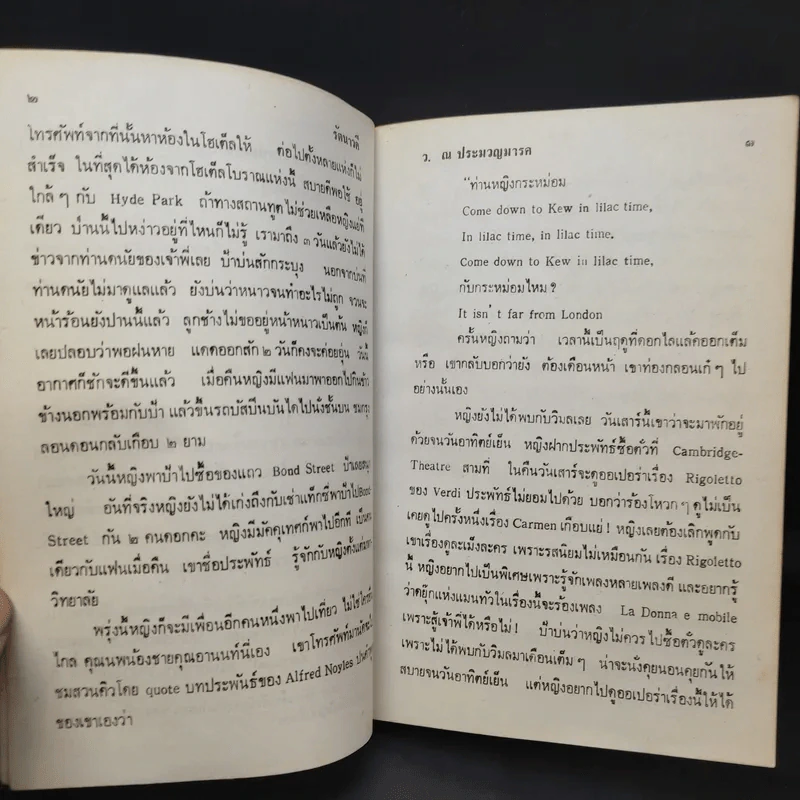 ๒
รัตนาวดี
โทรศัพท์จากที่นั้นหาห้องในโฮเต็ลให้ ต่อไปตั้งหลายแห่งก็ไม่
สำเร็จ ในที่สุดได้ห้องจากโฮเต็ลโบราณแห่งนี้ สบายดีพอใช้ อยู่
ใกล้ๆ กับ Hyde Park ถ้าทางสถานทูตไม่ช่วยเหลือหญิงแย่ที
เดียว ป่านนี้ไปหง่าวอยู่ที่ไหนก็ไม่รู้ เรามาถึง ๓ วันแล้วยังไม่ได้
ข่าวจากท่านดนัยของเจ้าพี่เลย ป้าบ่นสักกระบุง นอกจากบ่นที่
ท่านดนัยไม่มาดูแลแล้ว ยังบ่นว่าหนาวจนทำอะไรไม่ถูก จวนจะ
หน้าร้อนยังปานนี้แล้ว ลูกช้างไม่ขออยู่หน้าหนาวเป็นต้น หญิงก็
เลยปลอบว่าพอฝนหาย แดดออกสัก ๒ วันก็คงจะค่อยอุ่น วันนี้
อากาศก็ชักจะดีขึ้นแล้ว เมื่อคืนหญิงมีแฟนมาพาออกไปกินข้าว
ข้างนอกพร้อมกับป้า แล้วขึ้นรถบัสปีนบันไดไปนั่งชั้นบน ชมกรุง
ลอนดอนกลับเกือบ ๒ ยาม
วันนี้หญิงพาป้าไปซื้อของแถว Bond Street ป้าเลยสนุก
ใหญ่ อันที่จริงหญิงยังไม่ได้เก่งถึงกับเช่าแท็กซี่พาป้าไป Bond
Street กัน ๒ คนดอกคะ หญิงมีมัคคุเทศก์พาไปอีกที เป็นคน
เดียวกับแฟนเมื่อคืน เขาชื่อประพัทธ์ รู้จักกับหญิงตั้งแต่
วิทยาลัย
พรุ่งนี้หญิงก็จะมีเพื่อนอีกคนหนึ่งพาไปเที่ยว ไม่ใช่ใครที่
ไกล คุณนพน้องชายคุณอานนท์นี่เอง เขาโทรศัพท์มานัดจะ
ชมสวนคิวโดย quote บทประพันธ์ของ Alfred Noyles
ของเขาเองว่า
ว. ณ ประมวญมารค
๓
"ท่านหญิงกระหม่อม
Come down to Kew in lilac time,
In lilac time, in lilac time.
Come down to Kew in lilac time,
กับกระหม่อมไหม ?
It isn't far from London
ครั้นหญิงถามว่า เวลานี้เป็นฤดูที่ดอกไลแล็คออกเต็ม
หรือ เขากลับบอกว่ายัง ต้องเดือนหน้า เขาท่องกลอนเก๋ๆ ไป
อย่างนั้นเอง
หญิงยังไม่ได้พบกับวิมลเลย วันเสาร์นี้เขาว่าจะมาพักอยู่
ด้วยจนวันอาทิตย์เย็น หญิงฝากประพัทธ์ซื้อตั๋วที่ Cambridge-
Theatre สามที่ ในคืนวันเสาร์จะดูออเปอร่าเรื่อง Rigoletto
ของ Verdi ประพัทธ์ไม่ยอมไปด้วย บอกว่าร้องโหวกๆ ดูไม่เป็น
เคยดูไปครั้งหนึ่งเรื่อง Carmen เกือบแย่! หญิงเลยต้องเลิกพูดกับ
เขาเรื่องดูละเม็งละคร เพราะรสนิยมไม่เหมือนกัน เรื่อง Rigoletto
นี้ หญิงอยากไปเป็นพิเศษเพราะรู้จักเพลงหลายเพลงดี และอยากรู้
ว่าดยุ๊กแห่งแมนทัวในเรื่องนี้จะร้องเพลง La Donna e mobile
เพราะสู้เจ้าพี่ได้หรือไม่! ป้าบ่นว่าหญิงไม่ควรไปซื้อตั๋วดูละคร
เพราะไม่ได้พบกับวิมลมาเดือนเต็มๆ น่าจะนั่งคุยนอนคุยกันให้
สบายจนวันอาทิตย์เย็น แต่หญิงอยากไปดูออเปอร่าเรื่องนี้ให้ได้